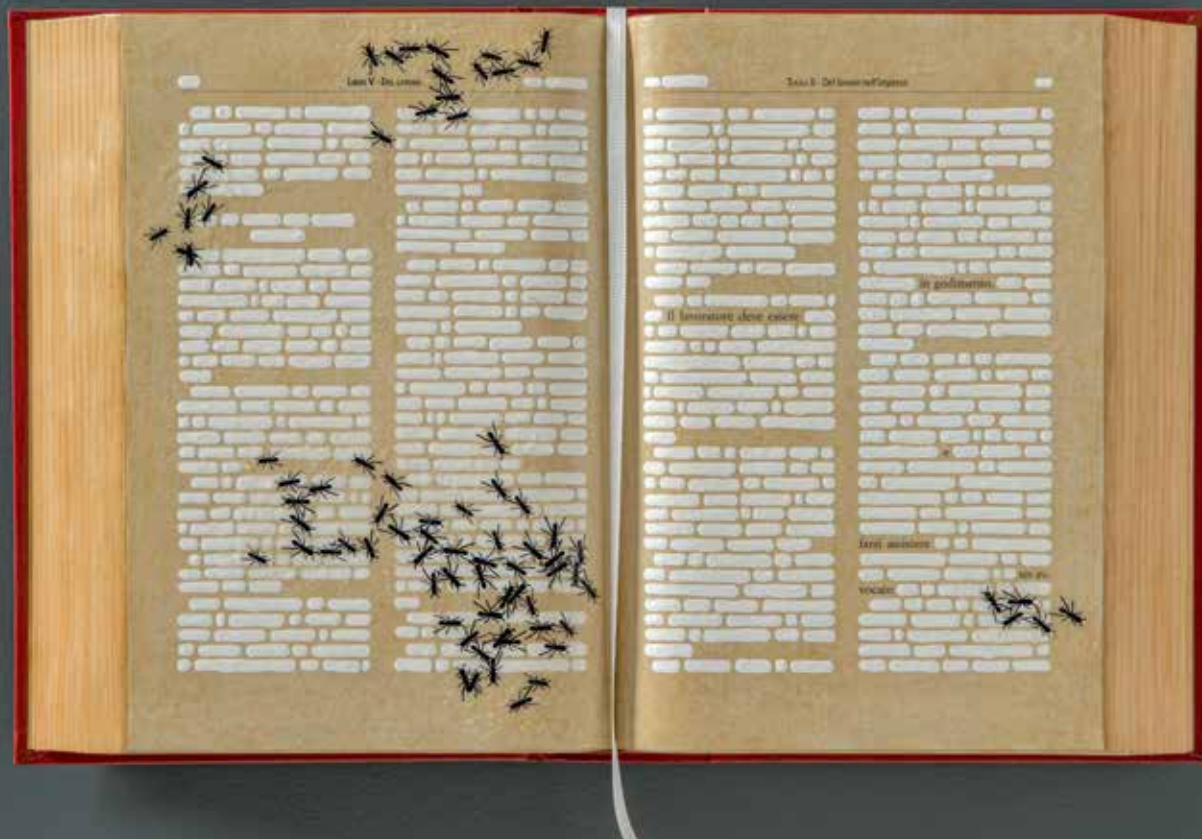 Libro V - Del lavoro
Titolo II - Del lavoro nell'impresa
Il lavoratore deve essere
in godimento.
farsi assistere
un av-
vocato